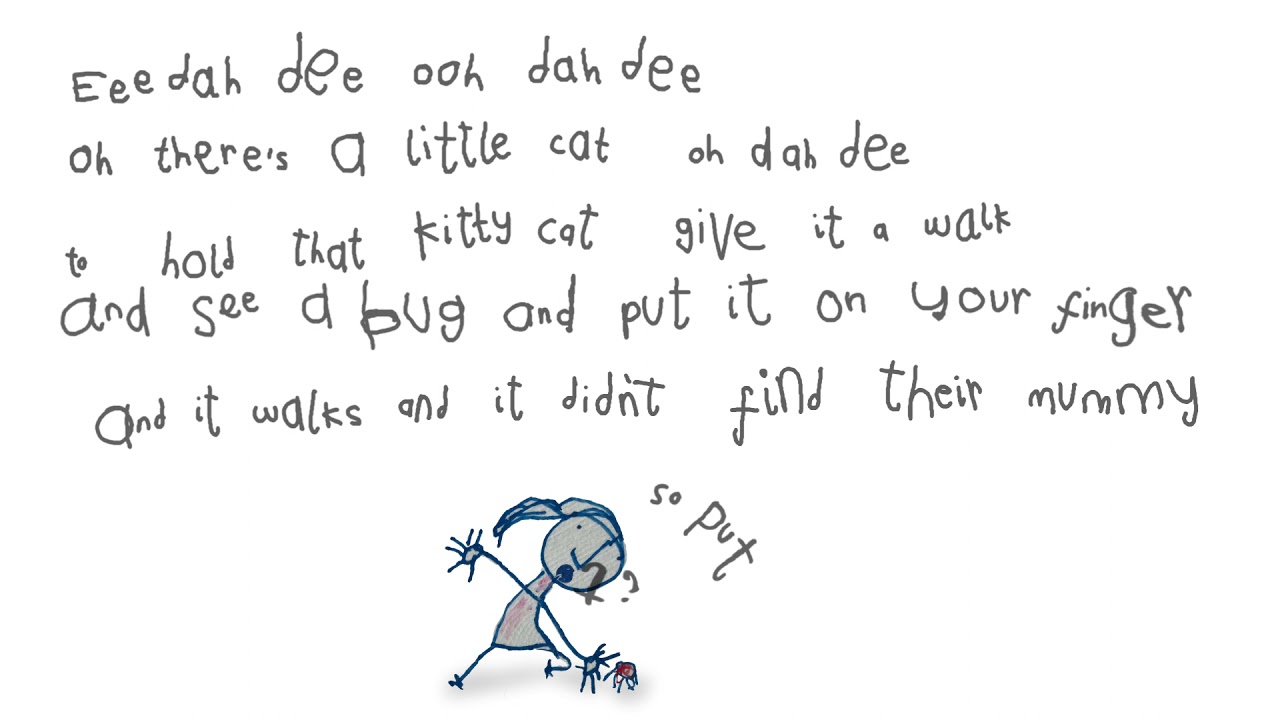 Eee dah dee ooh dah dee
oh there's a little cat oh dah dee
to hold that kitty cat give it a walk
and see a bug and put it on your finger
and it walks and it didn't find their mummy
so put